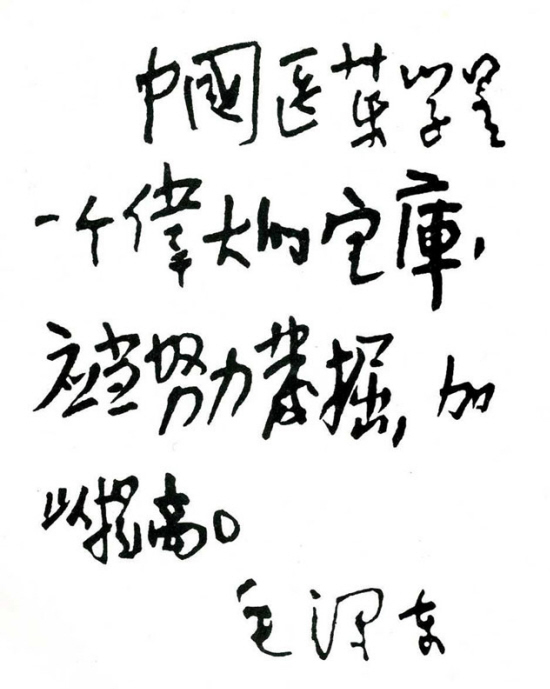 中國医药学是
一个偉大的宝庫，
应当努力發掘，加
以提高。
毛泽东